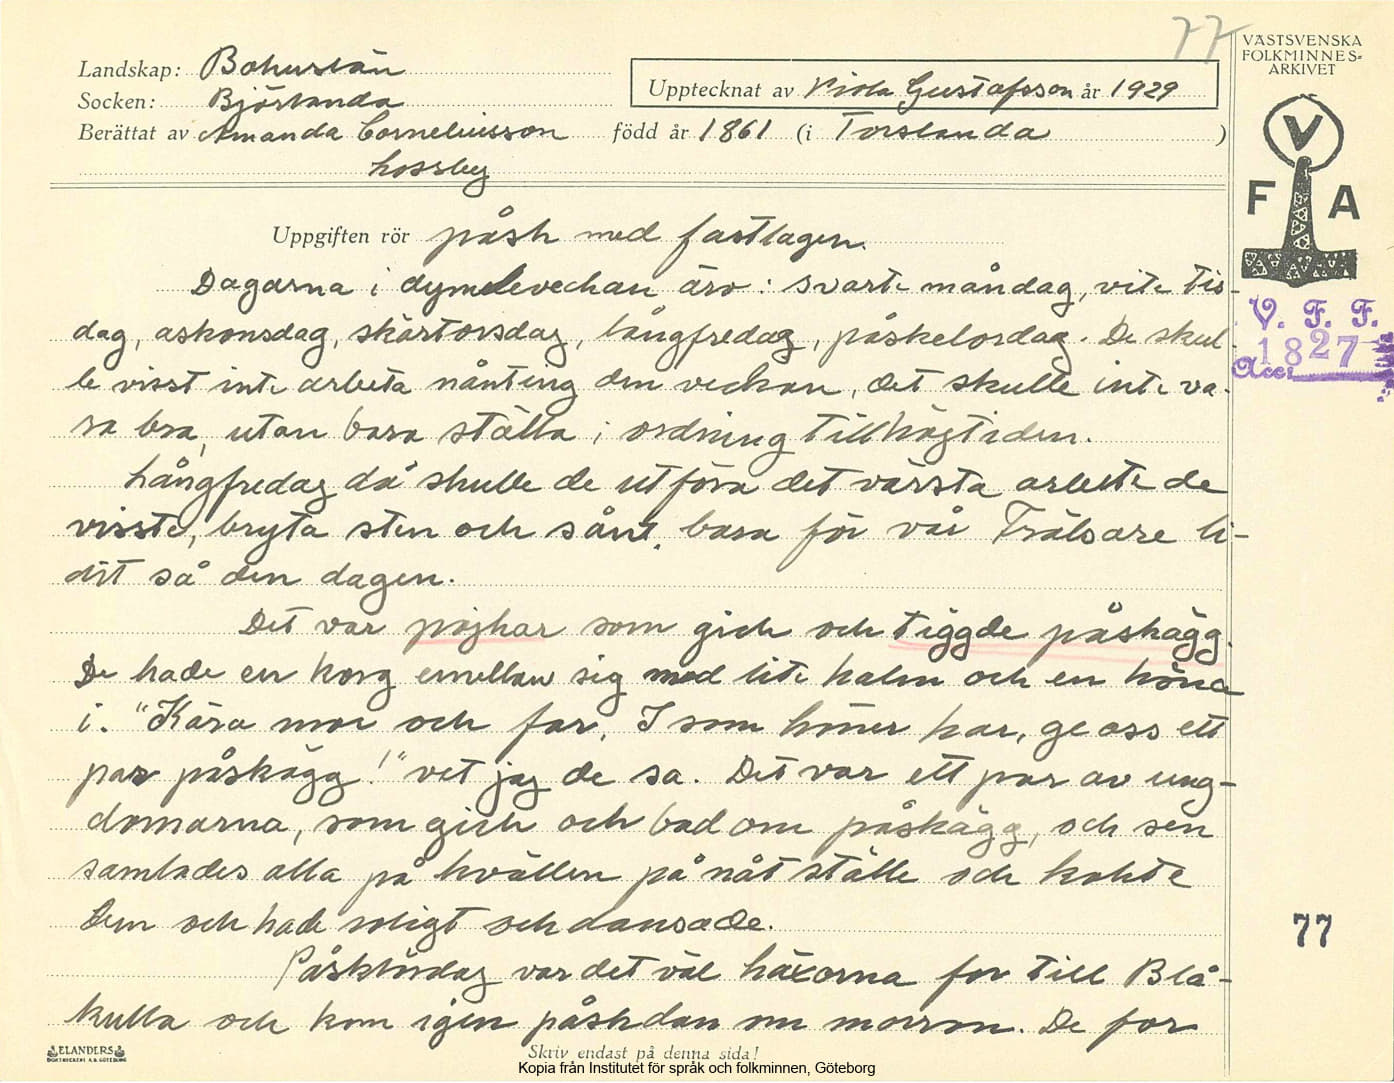 77
VÄSTSVENSKA
FOLKMINNES-
ARKIVET
Landskap: Bohuslän
Socken: Björlanda
Upptecknat av Viola Gustafsson år 1929
Berättat av Amanda Corneliusson född år 1861 (i Torslanda )
Lossby
V
F A
Uppgiften rör påsk med fastlagen.
Dagarna i dymleveckan äro: svarte måndag, vite tis-
dag, askonsdag, skärtorsdag, långfredag, påskelördag. De skul-
le visst inte arbeta nånting den veckan, det skulle inte va-
ra bra, utan bara ställa i ordning till högtiden.
Långfredag då skulle de utföra det värsta arbete de
visste, bryta sten och sånt, bara för vår Frälsare li-
dit så den dagen.
Det var pojkar som gick och tiggde påskägg.
De hade en korg emellan sig med lite halm och en höna
i. "Kära mor och far, I som höner har, ge oss ett
par påskägg!" vet jag de sa. Det var ett par av ung-
domarna, som gick och bad om påskägg, och sen
samlades alla på kvällen på nåt ställe och kokte
dem och hade roligt och dansade.
Påsklördag var det väl häxorna for till Blå-
kulla och kom igen påskdan om morron. De for
V. F. F.
Acc: 1827
77
ELANDERS
BOKTRYCKERI A.B. GÖTEBORG
Skriv endast på denna sida!
Kopia från Institutet för språk och folkminnen, Göteborg